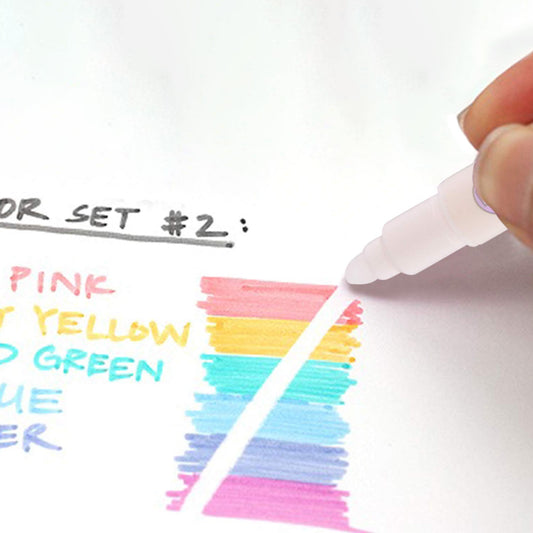 OR SET #2:
PINK
YELLOW
GREEN
UE
ER